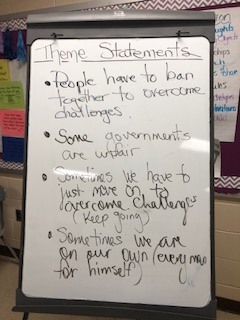 Theme Statements
• People have to ban
together to overcome
challenges.
• Some governments
are unfair
• Sometimes we have to
just move on to
overcome challenges
(keep going)
• Sometimes we are
on our own (every man
for himself)